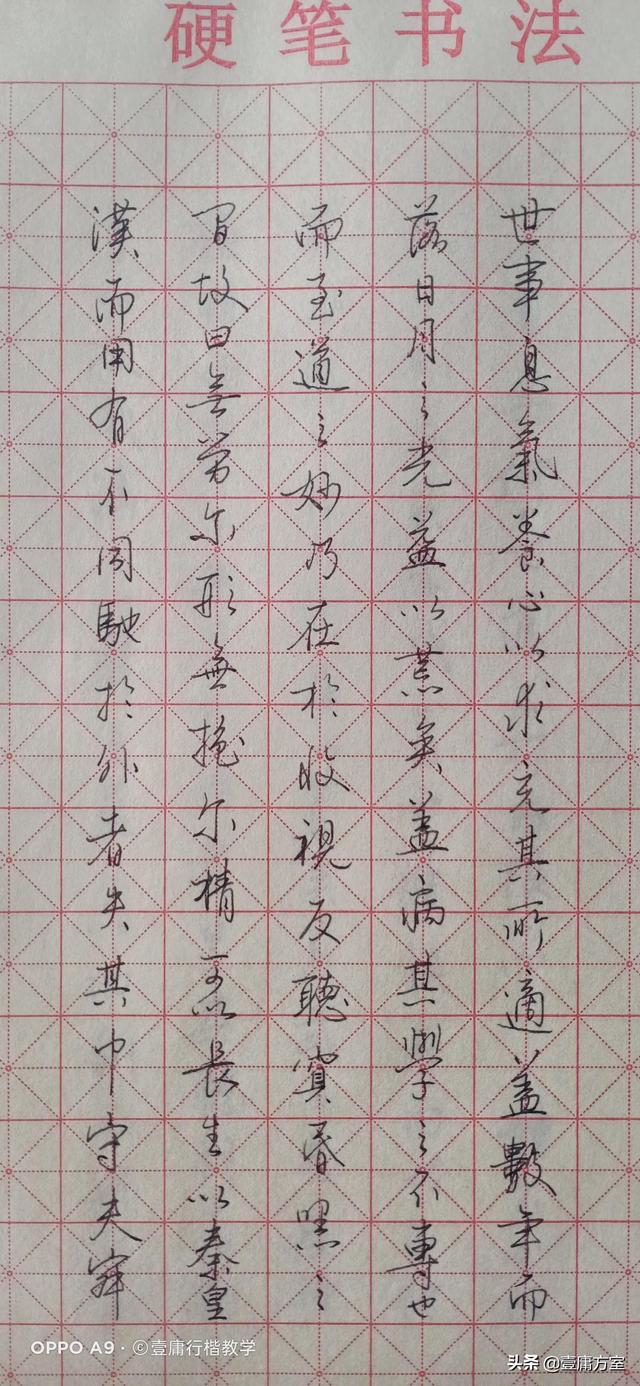 硬笔书法
世事息氣養心以求充其所適蓋數年而
落日月之光益以荒矣蓋病其學之不專也
而至道之妙乃在於收視反聽冥昏嘿之
間故曰無勞尔形無搖尔精可以長生以秦皇
漢而用有不同馳於外者失其中守夫
OPPO A9·©壹庸行楷教学
头条 @壹庸方室